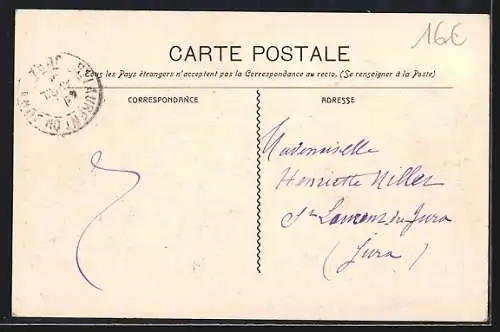 16€
CARTE POSTALE
Tous les Pays étrangers n'acceptent pas la Correspondance au recto. (Se renseigner à la Poste)
CORRESPONDANCE
ADRESSE
Mademoiselle
Henriette Niller
St Laurent du Jura
(Jura)